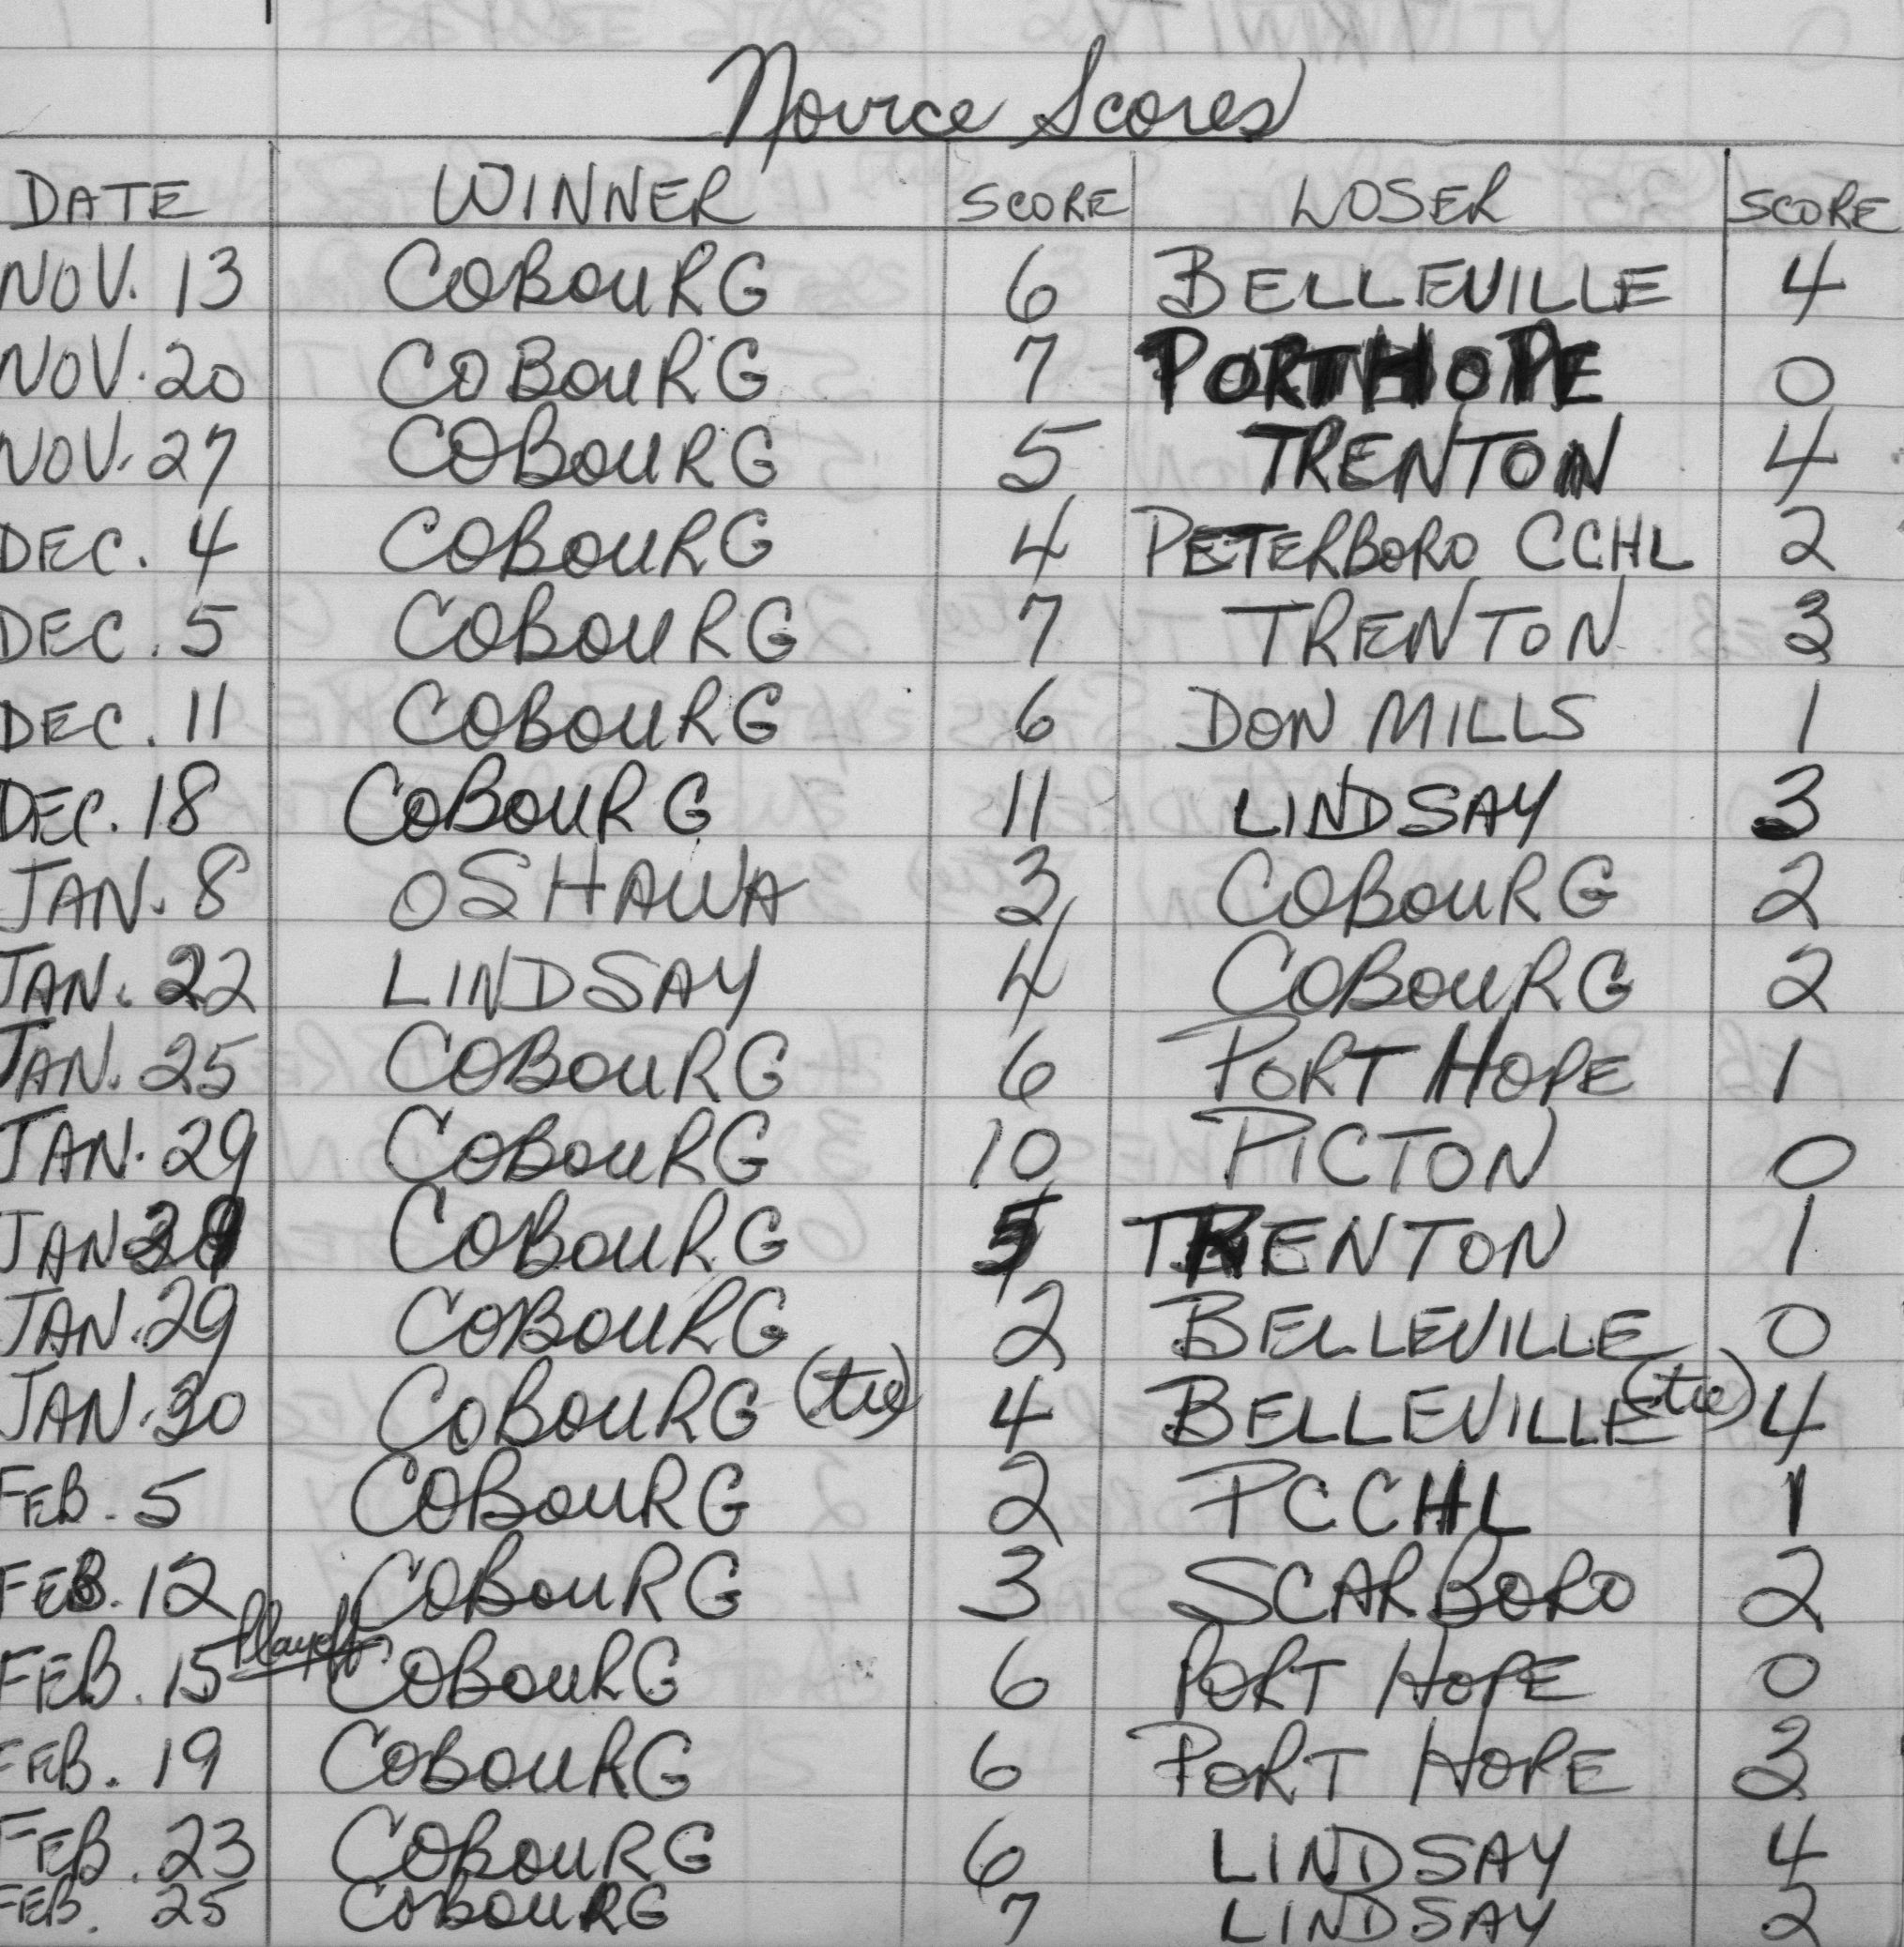 Novice Scores
DATE WINNER SCORE LOSER SCORE
NOV. 13 COBOURG 6 BELLEVILLE 4
NOV. 20 COBOURG 7 PORT HOPE 0
NOV. 27 COBOURG 5 TRENTON 4
DEC. 4 COBOURG 4 PETERBORO CCHL 2
DEC. 5 COBOURG 7 TRENTON 3
DEC. 11 COBOURG 6 DON MILLS 1
DEC. 18 COBOURG 11 LINDSAY 3
JAN. 8 OSHAWA 3 COBOURG 2
JAN. 22 LINDSAY 4 COBOURG 2
JAN. 25 COBOURG 6 PORT HOPE 1
JAN. 29 COBOURG 10 PICTON 0
JAN COBOURG 5 TRENTON 1
JAN. 29 COBOURG 2 BELLEVILLE 0
JAN. 30 COBOURG (tie) 4 BELLEVILLE (tie) 4
FEB. 5 COBOURG 2 PCCHL 1
FEB. 12 COBOURG 3 SCARBORO 2
FEB. 15 Playoffs COBOURG 6 PORT HOPE 0
FEB. 19 COBOURG 6 PORT HOPE 3
FEB. 23 COBOURG 6 LINDSAY 4
FEB. 25 COBOURG 7 LINDSAY 2